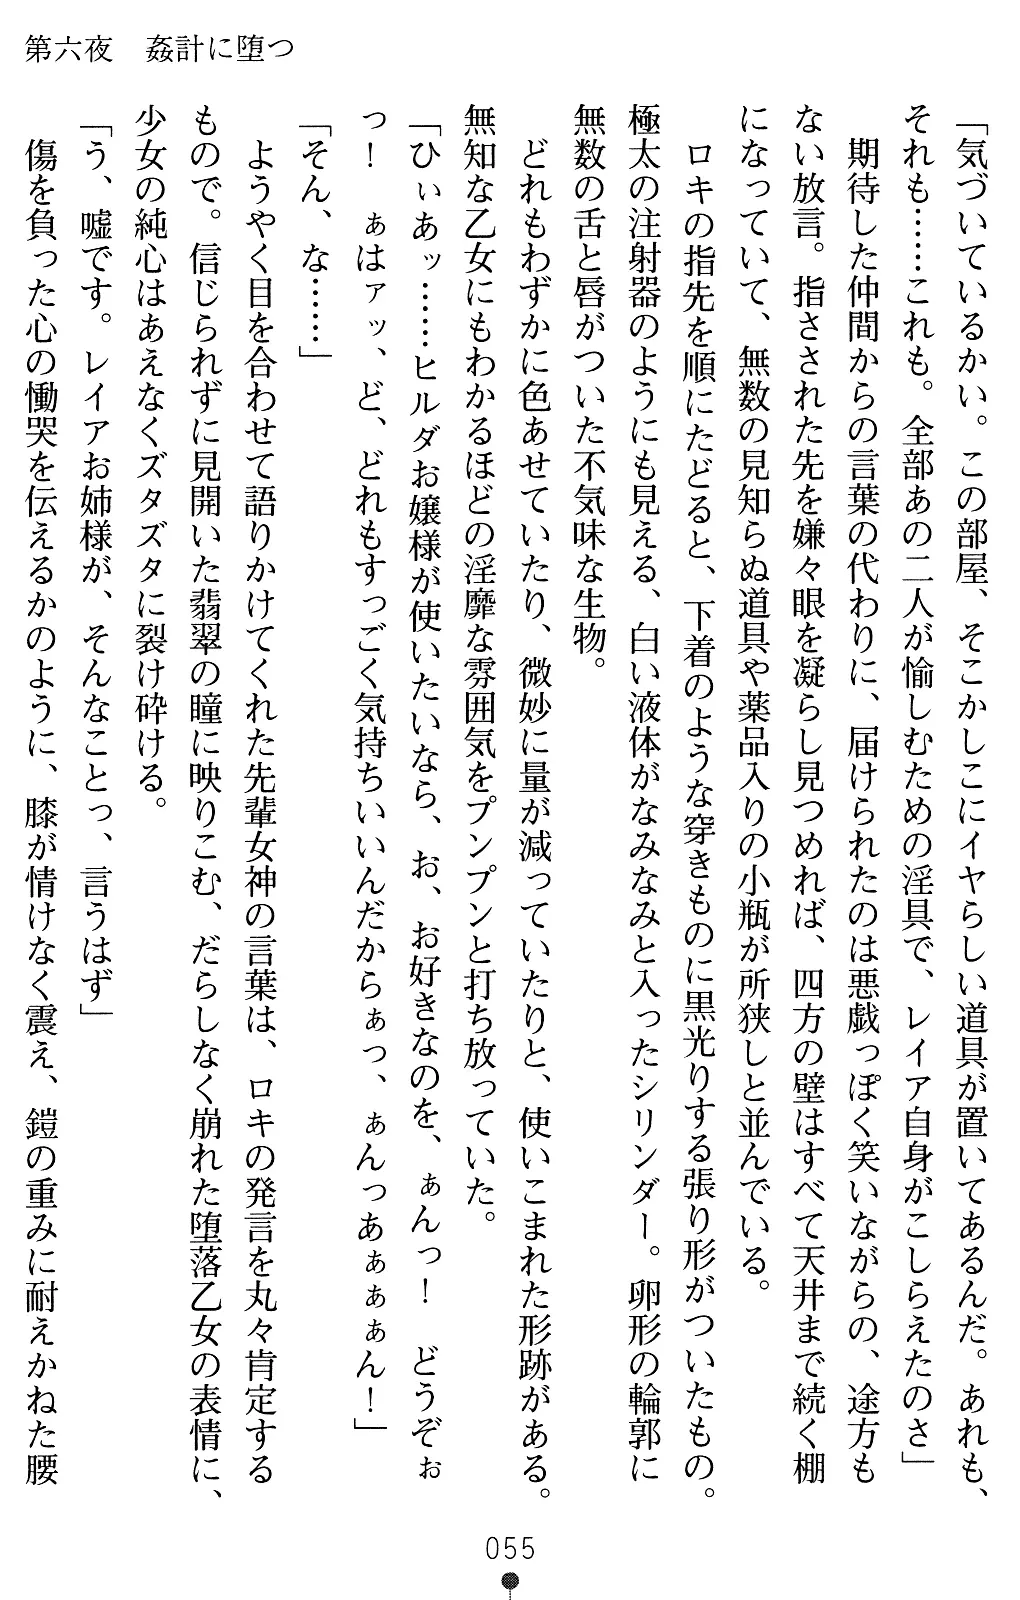 第六夜　姦計に堕つ
「気づいているかい。この部屋、そこかしこにイヤらしい道具が置いてあるんだ。あれも、
それも……これも。全部あの二人が愉しむための淫具で、レイア自身がこしらえたのさ」
　期待した仲間からの言葉の代わりに、届けられたのは悪戯っぽく笑いながらの、途方も
ない放言。指さされた先を嫌々眼を凝らし見つめれば、四方の壁はすべて天井まで続く棚
になっていて、無数の見知らぬ道具や薬品入りの小瓶が所狭しと並んでいる。
　ロキの指先を順にたどると、下着のような穿きものに黒光りする張り形がついたもの。
極太の注射器のようにも見える、白い液体がなみなみと入ったシリンダー。卵形の輪郭に
無数の舌と唇がついた不気味な生物。
　どれもわずかに色あせていたり、微妙に量が減っていたりと、使いこまれた形跡がある。
無知な乙女にもわかるほどの淫靡な雰囲気をプンプンと打ち放っていた。
「ひぃあッ……ヒルダお嬢様が使いたいなら、お、お好きなのを、ぁんっ！　どうぞぉ
っ！　ぁはァッ、ど、どれもすっごく気持ちいいんだからぁっ、ぁんっあぁぁぁん！」
「そん、な……」
　ようやく目を合わせて語りかけてくれた先輩女神の言葉は、ロキの発言を丸々肯定する
もので。信じられずに見開いた翡翠の瞳に映りこむ、だらしなく崩れた堕落乙女の表情に、
少女の純心はあえなくズタズタに裂け砕ける。
「う、嘘です。レイアお姉様が、そんなことっ、言うはず」
　傷を負った心の慟哭を伝えるかのように、膝が情けなく震え、鎧の重みに耐えかねた腰
055